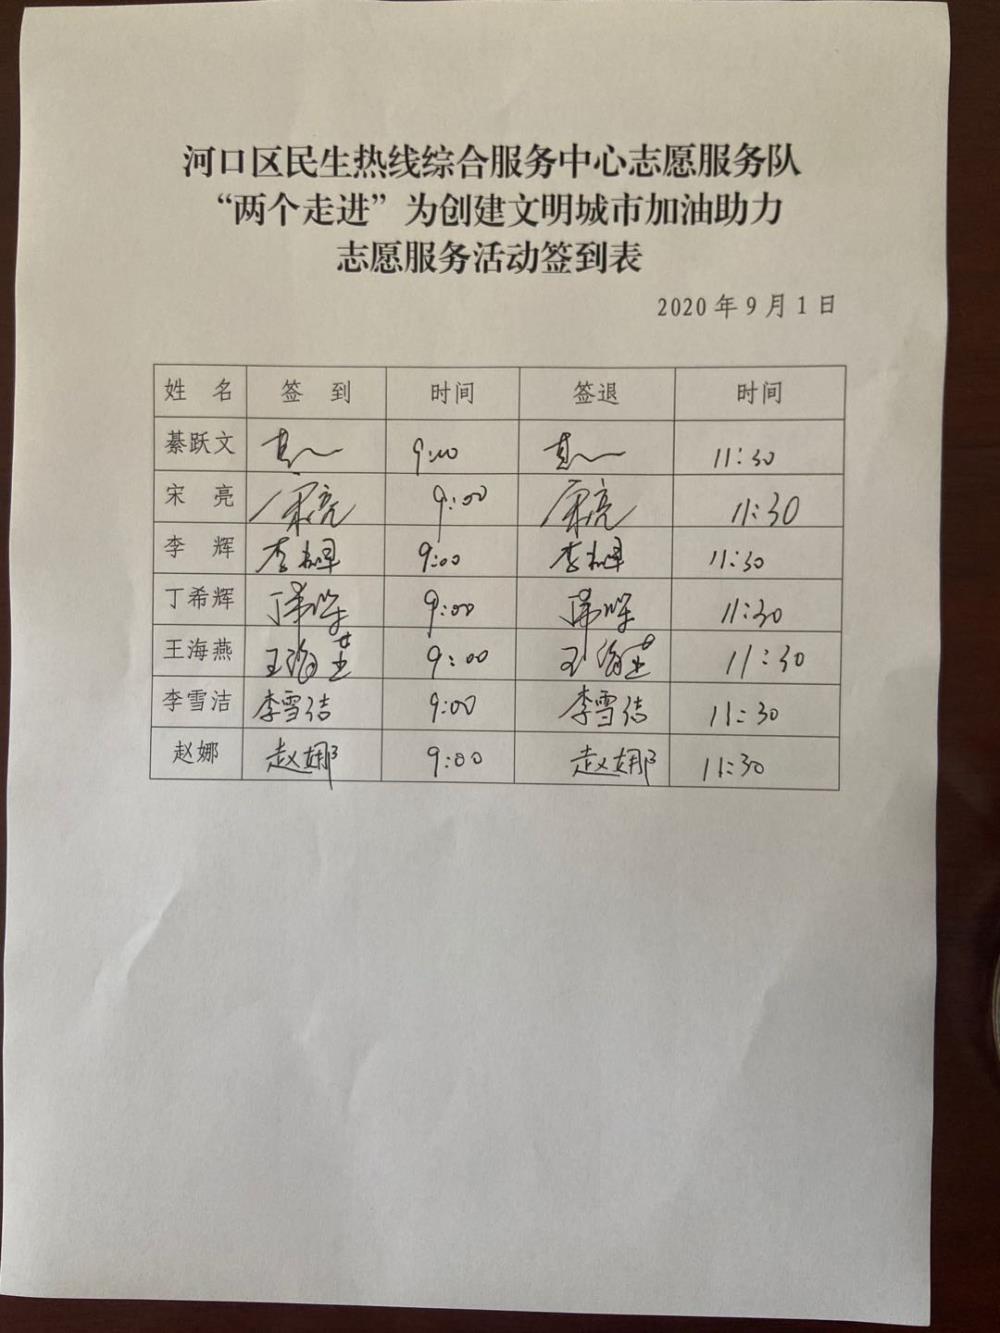 河口区民生热线综合服务中心志愿服务队
“两个走进”为创建文明城市加油助力
志愿服务活动签到表
2020年9月1日
姓 名 签 到 时间 签退 时间
綦跃文 9:00 11:30
宋 亮 宋亮 9:00 宋亮 11:30
李 辉 李辉 9:00 李辉 11:30
丁希辉 丁希辉 9:00 丁希辉 11:30
王海燕 王海燕 9:00 王海燕 11:30
李雪洁 李雪洁 9:00 李雪洁 11:30
赵娜 赵娜 9:00 赵娜 11:30